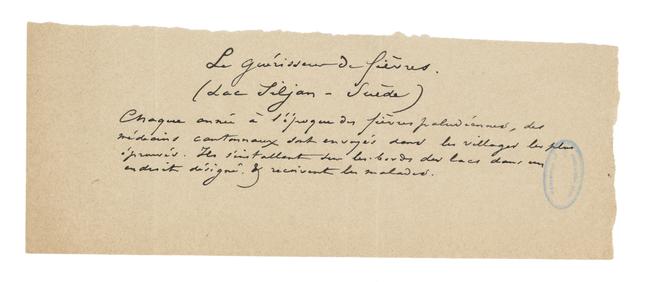 Le guérisseur de fièvres.
(Lac Siljan - Suède)
Chaque année à l'époque des fièvres paludéennes, des
médecins cantonnaux sont envoyés dans les villages les plus
éprouvés. Ils s'installent sur les bords des lacs dans un
endroit désigné & reçoivent les malades.